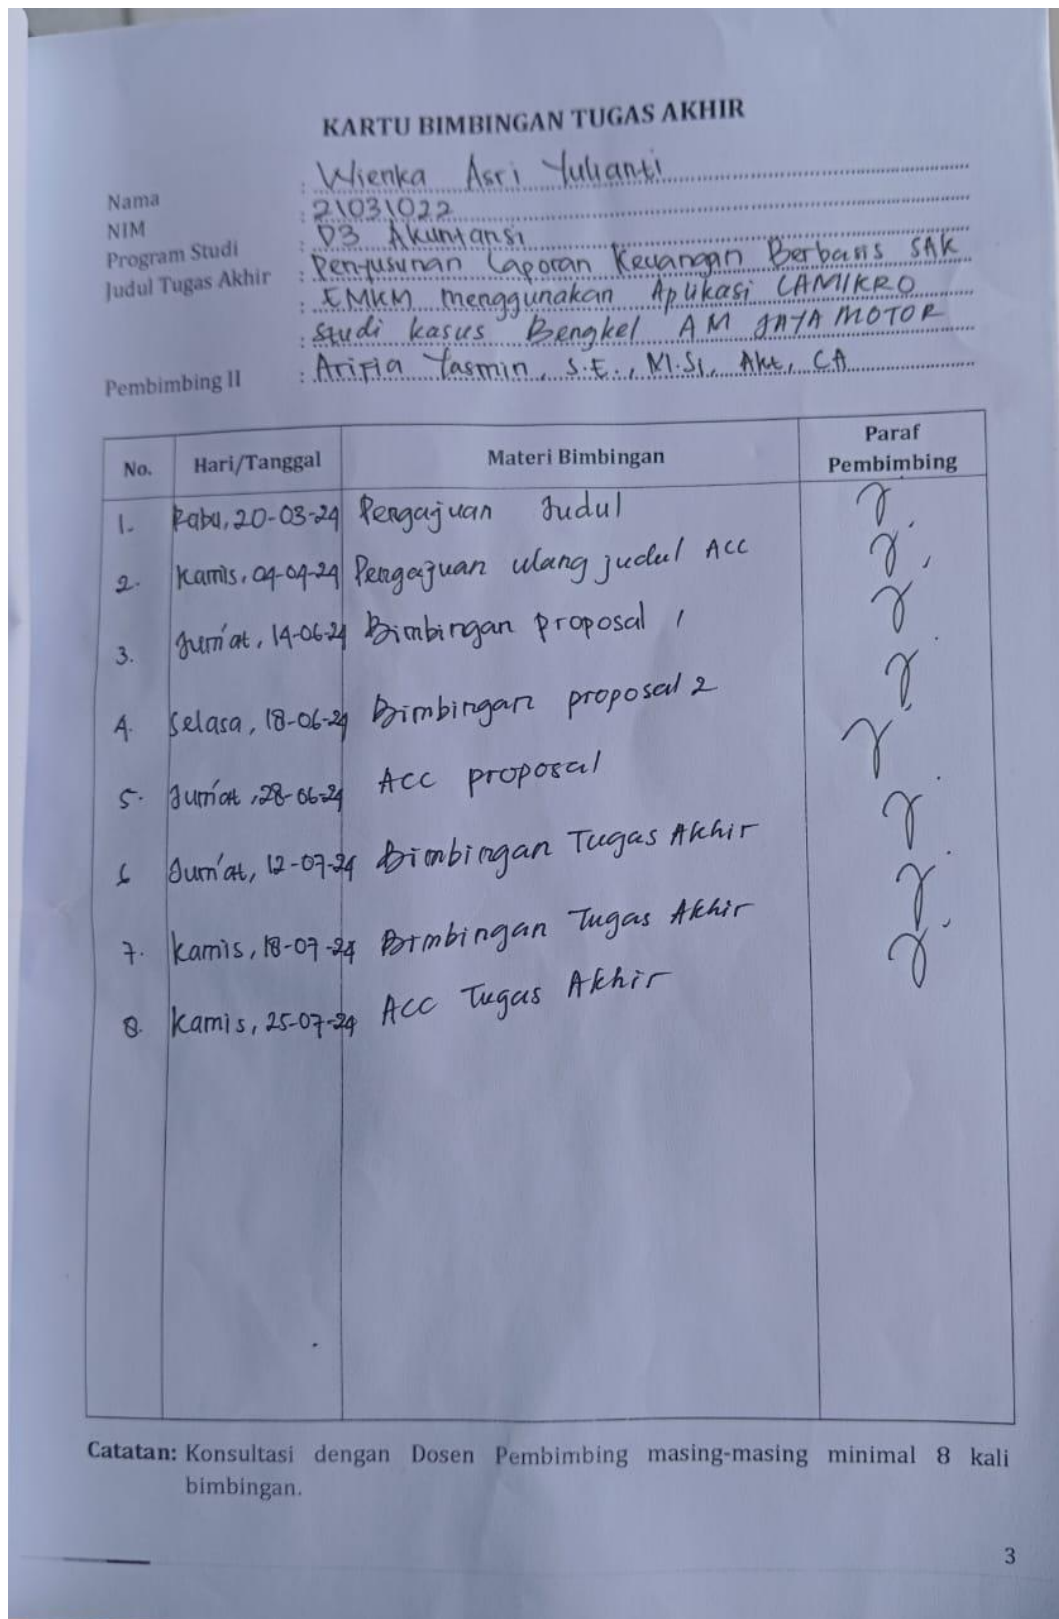 KARTU BIMBINGAN TUGAS AKHIR
Nama : Wienka Asri Yulianti
NIM : 21031022
Program Studi : D3 Akuntansi
Judul Tugas Akhir : Penyusunan Laporan Keuangan Berbasis SAK
: EMKM menggunakan Aplikasi LAMIKRO
: Studi kasus Bengkel AM JAYA MOTOR
Pembimbing II : Arifia Yasmin, S.E., M.Si, Akt, CA
No. Hari/Tanggal Materi Bimbingan Paraf Pembimbing
1. Rabu, 20-03-24 Pengajuan Judul
2. Kamis, 04-04-24 Pengajuan ulang judul ACC
3. Jum'at, 14-06-24 Bimbingan proposal 1
4. Selasa, 18-06-24 Bimbingan proposal 2
5. Jum'at, 28-06-24 ACC proposal
6 Jum'at, 12-07-24 Bimbingan Tugas Akhir
7. Kamis, 18-07-24 Bimbingan Tugas Akhir
8. Kamis, 25-07-24 ACC Tugas Akhir
Catatan: Konsultasi dengan Dosen Pembimbing masing-masing minimal 8 kali
bimbingan.
3